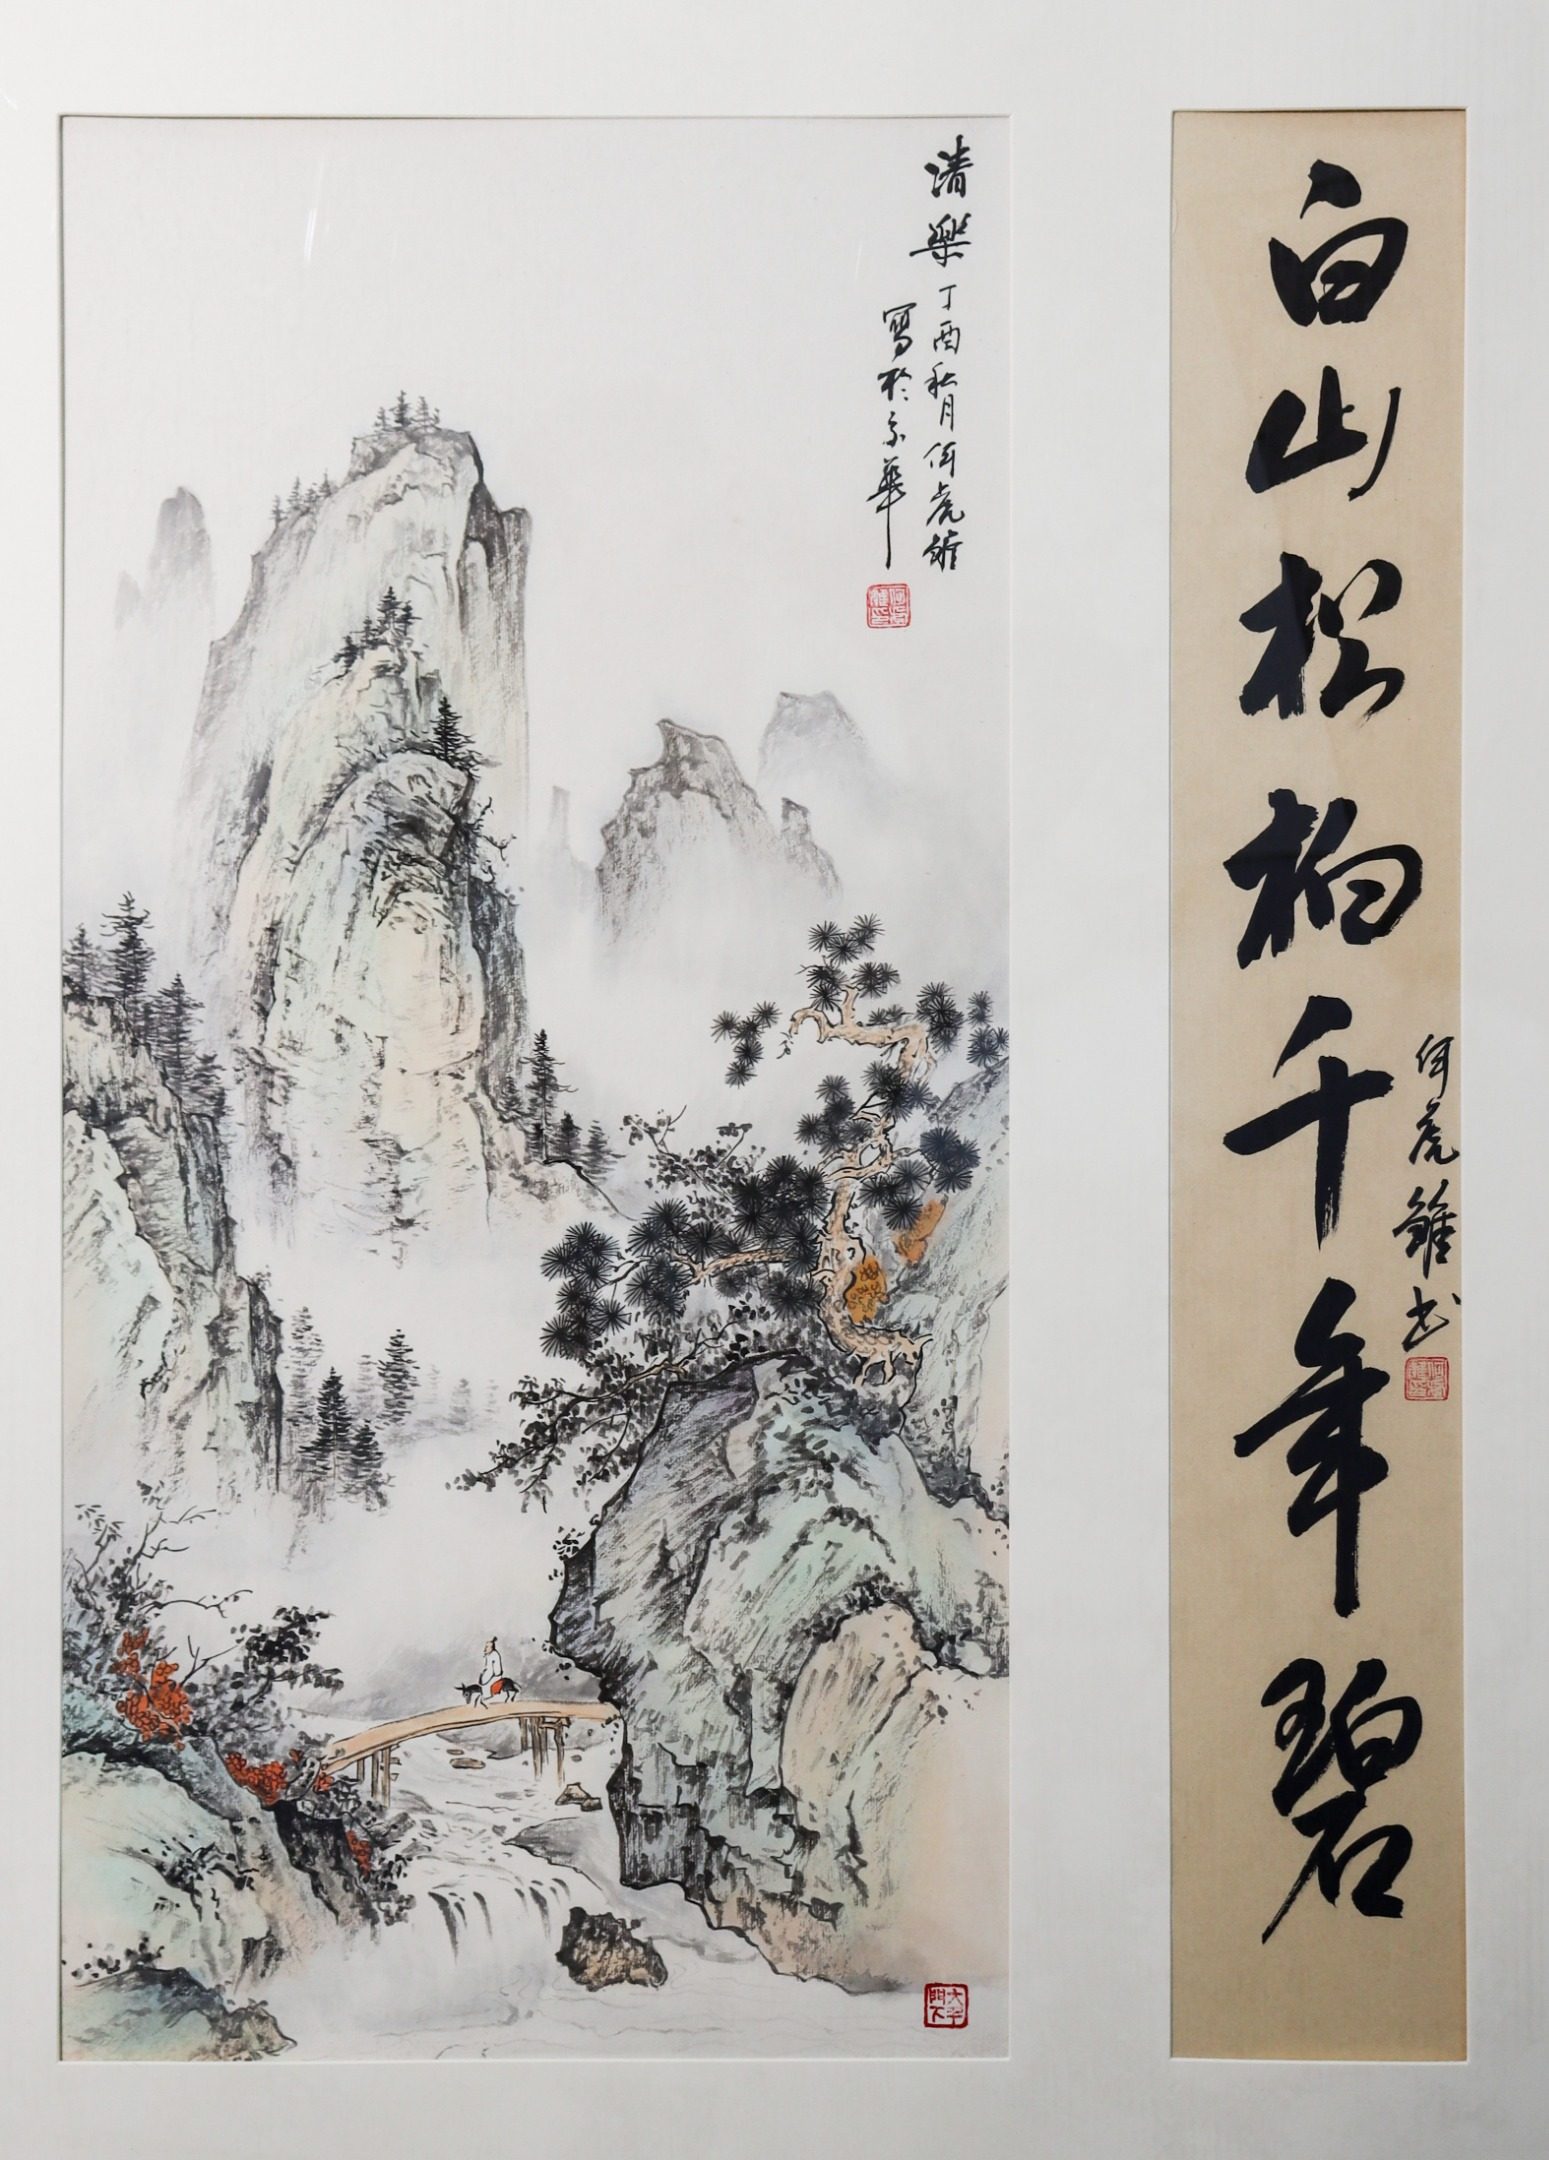 清樂 丁酉秋月何虎雄
寫於京華
白山松柏千年碧
何虎雄书